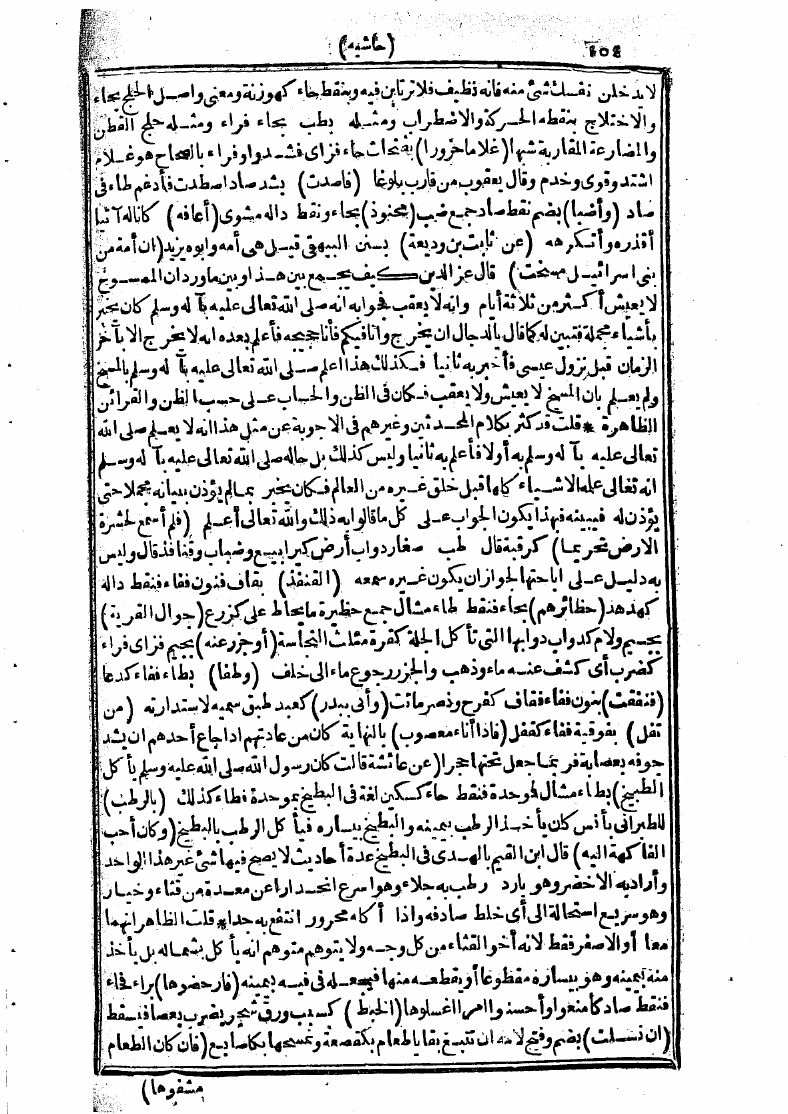 (حاشيه)
لا يدخلن نفسك شئ منه فانه نظيف فلا ترتابن فيه وبنقط خاء كهو زنة ومعنى واصل الخلج بخاء
والاختلاج بنقطه الحركة والاضطراب ومثله بطب بحاء فراء ومثله حلج القطن
والمضارعة المقاربة شبها (غلاما حزورا) بفتحات حاء فزاى فشد واو فراء بالصحاح هو غلام
اشتد وقوى وخدم وقال يعقوب من قارب بلوغا (فاصدت) بشد صاد اصطدت فأدغم طاء فى
صاد (وأضبا) بضم نقط صاد جمع ضب (محنوذ) بحاء ونقط داله مشوى (أعافه) كاناله آتيا
أقذره وأتكرهه (عن ثابت بن وديعة) بسنن البيهقى قيل هى أمه وابوه يزيد (ان أمة من
بنى اسرائيل مسخت) قال عز الدين كيف يجمع بين هذا وبين ما ورد ان الممسوخ
لا يعيش أكثر من ثلاثة أيام وانه لا يعقب فجوابه انه صلى الله تعالى عليه بآ له وسلم كان يخبر
بأشياء مجملة فتبين له كما قال بالدجال ان يخرج وانا فيكم فأنا حجيجه فأعلم بعده انه لا يخرج الا بآخر
الزمان قبل نزول عيسى فأخبر به ثانيا فكذلك هذا اعلم صلى الله تعالى عليه بآ له وسلم بالمسخ
ولم يعلم بان المسخ لا يعيش ولا يعقب فكان فى الظن والحساب على حسب الظن والقرائن
الظاهرة * قلت قد كثر بكلام المحدثين وغيرهم فى الاجوبة عن مثل هذا انه لا يعلم صلى الله
تعالى عليه بآ له وسلم به أولا فأعلم به ثانيا وليس كذلك بل حاله صلى الله تعالى عليه بآ له وسلم
انه تعالى علمه الاشياء كلها قبل خلق غيره من العالم فكان يخبر بما لم يؤذن ببيانه مجملا حتى
يؤذن له فيبينه فهذا يكون الجواب على كل ما قالوا به ذلك والله تعالى أعلم (فلم أسمع لحشرة
الارض تحريما) كرقبة قال طب صغار دواب أرض كيرابيع وضباب وقنافذ قال وليس
به دليل على اباحتها لجواز ان يكون غيره سمعه (القنفذ) بقاف فنون ففاء فنقط داله
كهدهد (حظائرهم) بحاء فنقط طاء مشال جمع حظيرة ما يحاط على كزرع (جوال القرية)
بجيم ولام كدواب دوابها التى تأكل الجلة كقرة مثلث النجاسة (أو جزر عنه) بجيم فزاى فراء
كضرب أى كشف عنه ماء وذهب والجزر رجوع ماء الى خلف (وطفا) بطاء ففاء كدعا
(فنفقت) بنون ففاء فقاف كفرح ونصر ماتت (وأتى ببدر) كعبد طبق سمى به لاستدارته (من
تفل) بفوقية ففاء كقفل (فاذا أناء معصوب) بالنهاية كان من عادتهم اذا جاع أحدهم ان يشد
جوفه بعصابة فربما جعل تحتها حجرا (عن عائشة قالت كان رسول الله صلى الله عليه وسلم يأكل
الطبيخ) بطاء مشال فوحدة فنقط خاء كسكين لغة فى البطيخ بموحدة فطاء كذلك (بالرطب)
للطبرانى بأنس كان يأخذ الرطب بيمينه والبطيخ بيساره فيأكل الرطب بالبطيخ (وكان أحب
الفاكهة اليه) قال ابن القيم بالهدى فى البطيخ عدة أحاديث لا يصح فيها شئ غير هذا الواحد
وأراد به الاخضر وهو بارد رطب به جلاء وهو اسرع انحدارا عن معدة من قثاء وخيار
وهو سريع استحالة الى أى خلط صادفه واذا أكله محرور انتفع به جدا * قلت الظاهر انهما
معا أو الاصفر فقط لانه أخو القثاء من كل وجه ولا يتوهم متوهم انه يأكل بشماله بل يأخذ
منه بيمينه وهو بيساره مقطوعا أو يقطعه منها فيجعله فى فيه بيمينه (فارحضوها) براء فحاء
فنقط صاد كامنعوا وأحسنوا امر اغسلوها (الخبط) كسبب ورق شجر يضرب بعصا فيسقط
(ان نسلت) بضم وفتح لامه ان نتتبع بقايا طعام بكقصعة وتمسحها بكاصابع (فان كان الطعام
مشفوها)